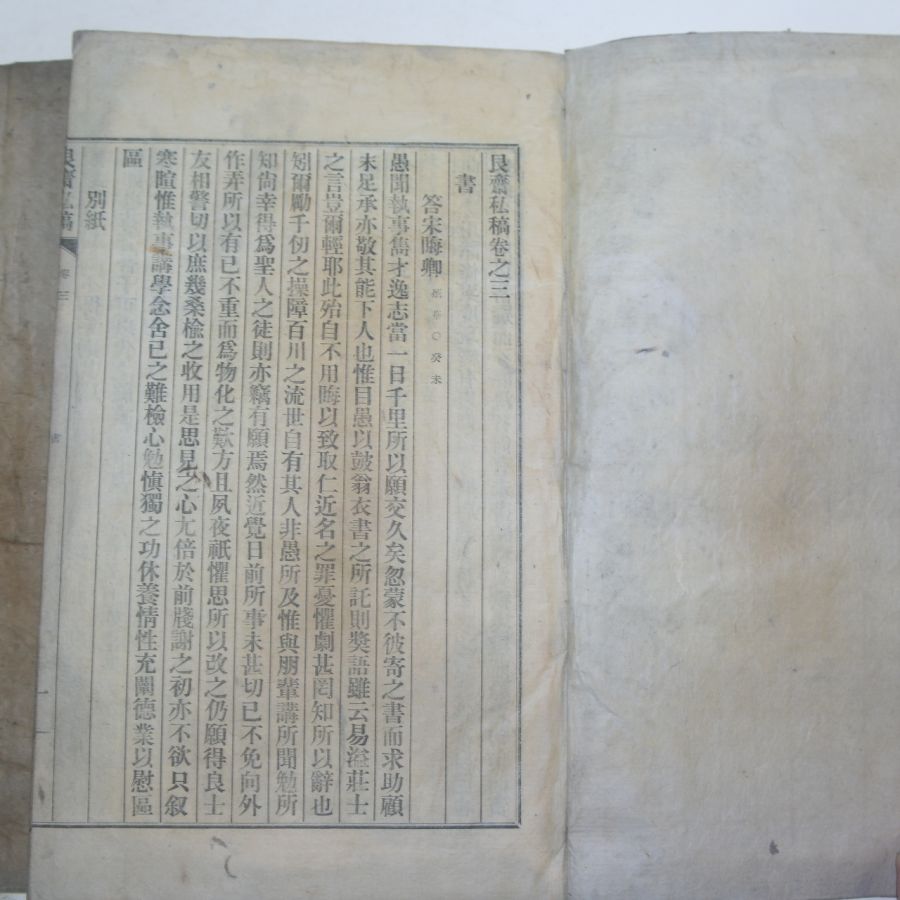 艮齋私稿卷之三
書
答宋晦卿 炳華○癸未
愚聞執事雋才逸志當一日千里所以願交久矣忽蒙不彼寄之書而求助顧
未足承亦敬其能下人也惟目愚以鼓翁衣書之所託則獎語雖云易溢莊士
之言豈爾輕耶此殆自不用晦以致取仁近名之罪憂懼劇甚罔知所以辭也
矧爾勵千仞之操障百川之流世自有其人非愚所及惟與朋輩講所聞勉所
知尙幸得爲聖人之徒則亦竊有願焉然近覺日前所事未甚切已不免向外
作弄所以有已不重而爲物化之歎方且夙夜祇懼思所以改之仍願得良士
友相警切以庶幾桑楡之收用是思見之心尢倍於前牋謝之初亦不欲只叙
寒暄惟執事講學念舍已之難檢心勉愼獨之功休養情性充闡德業以慰區
區
別紙
艮齋私稿 卷三 書 一